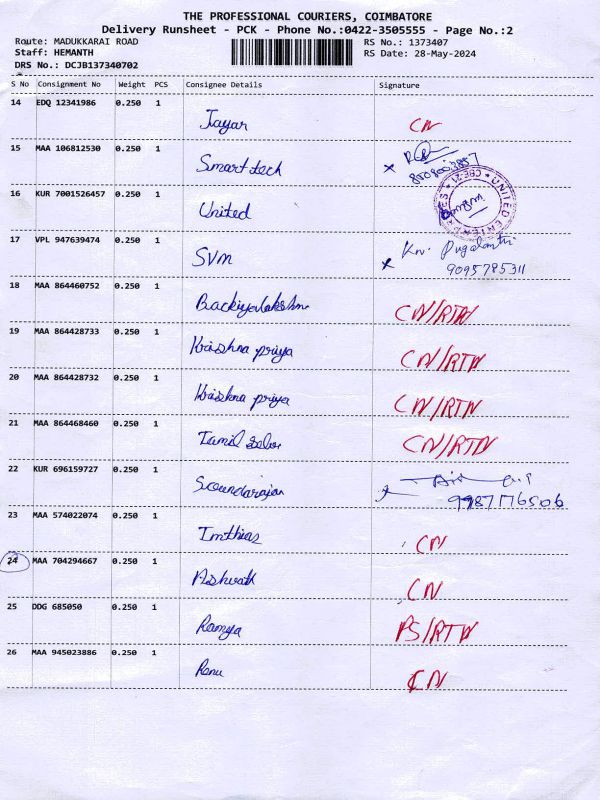 THE PROFESSIONAL COURIERS, COIMBATORE
Delivery Runsheet - PCK - Phone No.:0422-3505555 - Page No.:2
Route: MADUKKARAI ROAD RS No.: 1373407
Staff: HEMANTH RS Date: 28-May-2024
DRS No.: DCJB137340702
S No Consignment No Weight PCS Consignee Details Signature
14 EDQ 12341986 0.250 1
Jayar CN
15 MAA 106812530 0.250 1
Smart tech x
16 KUR 7001526457 0.250 1
United UNITED ENTERPRISES * CBE-21 *
17 VPL 947639474 0.250 1
SVM x Kn. Pugalenthi
9095785311
18 MAA 864460752 0.250 1
Backiyalakshmi CN/RTN
19 MAA 864428733 0.250 1
Krishna priya CN/RTN
20 MAA 864428732 0.250 1
Krishna priya CN/RTN
21 MAA 864468460 0.250 1
Tamil Selvi CN/RTN
22 KUR 696159727 0.250 1
Soundarajan x
9987776506
23 MAA 574022074 0.250 1
Imthias CN
24 MAA 704294667 0.250 1
Ashwath CN
25 DDG 685050 0.250 1
Ramya PS/RTN
26 MAA 945023886 0.250 1
Renu CN